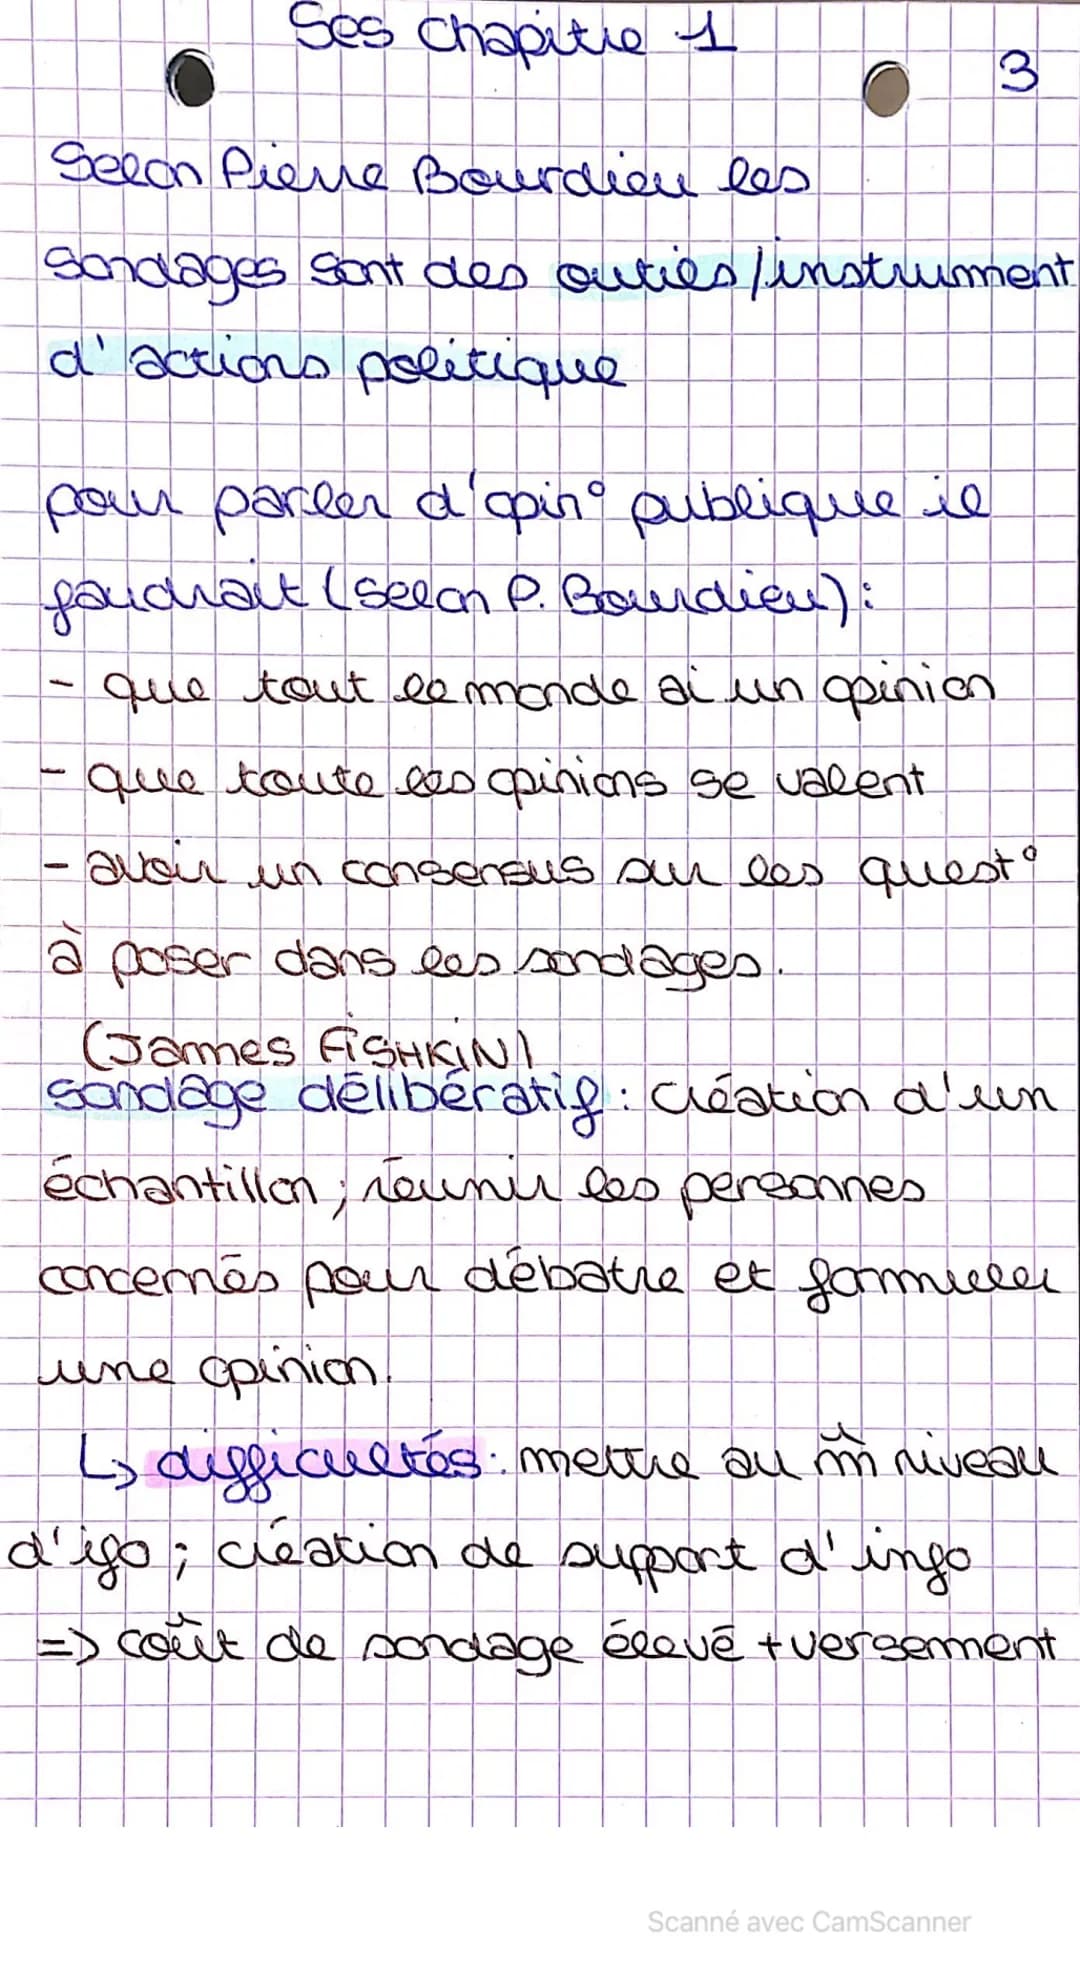 Ses Chapitre 1
3
Selon Pierre Bourdieu les
sondages sont des outies/instrument
d'actions politique
pour parler d'opin° publique il
faudrait (selon P. Bourdieu):
- que tout le monde ai un opinion
- que toute les opinions se valent
- avoir un consensus sur les quest°
à poser dans les sondages.
(James FISHKIN)
sondage délibératif: création d'un
échantillon; réunir les personnes
concernés pour débatre et formuler
une opinion.
↳ difficultés: mettre au m̂ niveau
d'ifo; création de support d'info
=> coût de sondage élevé + versement
Scanné avec CamScanner